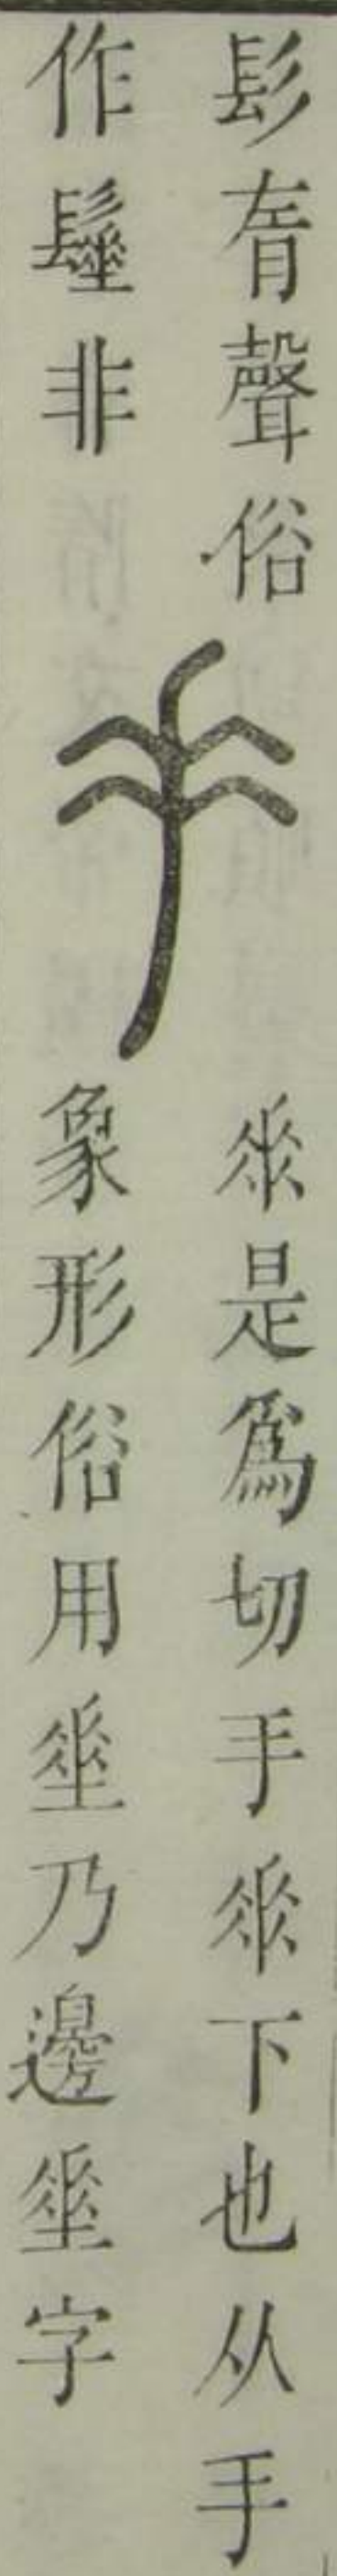 髟聲俗
作非
𠂹是爲切手𠂹下也从手
象形俗用𡍮乃邊𡍮字